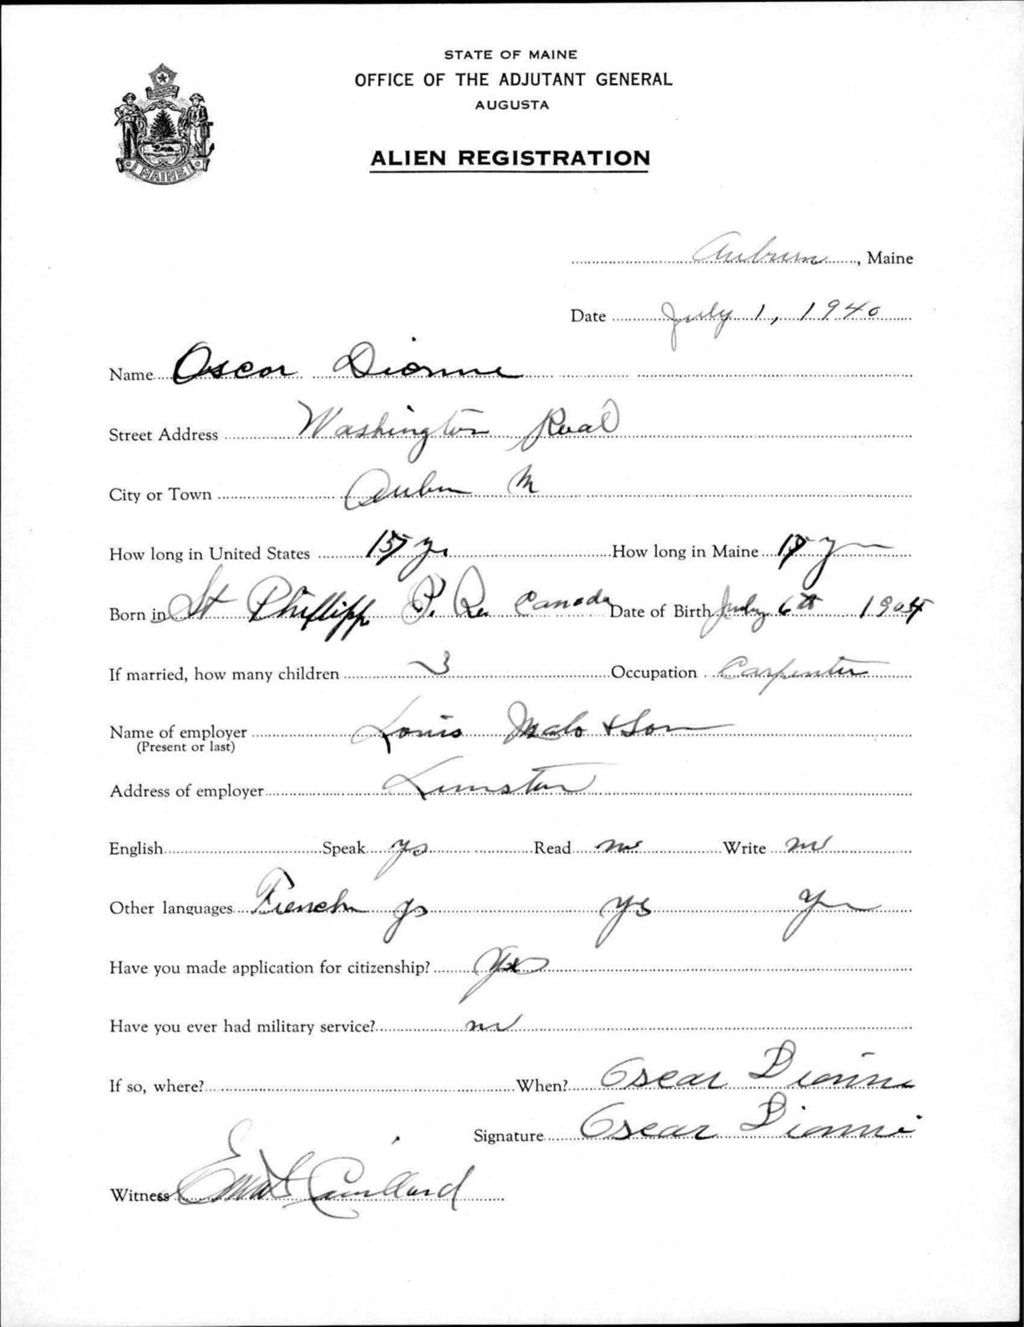 STATE OF MAINE
OFFICE OF THE ADJUTANT GENERAL
AUGUSTA
ALIEN REGISTRATION
MAINE
Auburn, Maine
Date July 1, 1940
Name Oscar Dionne
Street Address Washington Road
City or Town Auburn M
How long in United States 15 yr How long in Maine yr
Born in St Phillipp P. Q. Canada Date of Birth July 6th 1904
If married, how many children 3 Occupation Carpenter
Name of employer Louis Malo & Son
(Present or last)
Address of employer Lewiston
English Speak yes Read no Write no
Other languages French yes yes yes
Have you made application for citizenship? Yes
Have you ever had military service? no
If so, where? When? Oscar Dionne
Signature Oscar Dionne
Witness